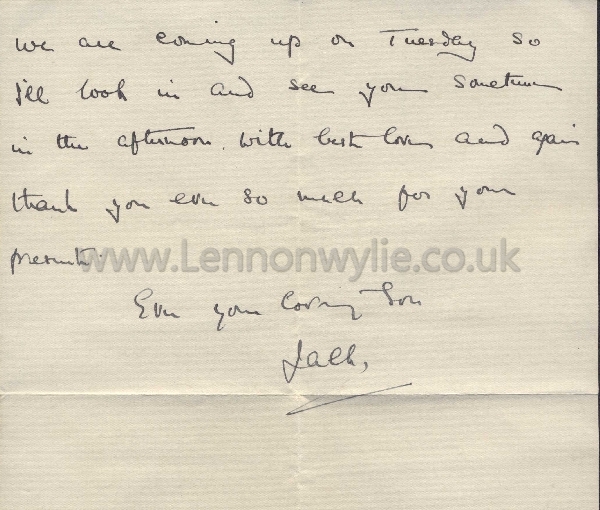 we are coming up on Tuesday so
I'll look in and see you sometime
in the afternoon. With best love and again
thank you ever so much for your
present.
www.Lennonwylie.co.uk
Ever your loving Son
Jack.